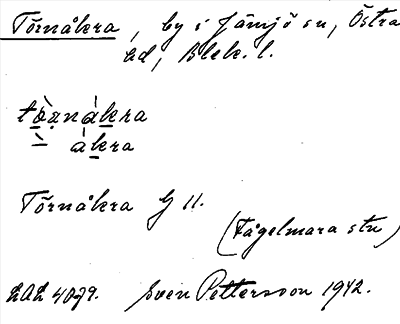 Törnåkra, by i Jämjö sn, Östra
hd, Blek. l.
tö̀rnákra
ákra
Törnåkra G 11.
(Fågelmara stn)
LAL 4079. Sven Pettersson 1942.